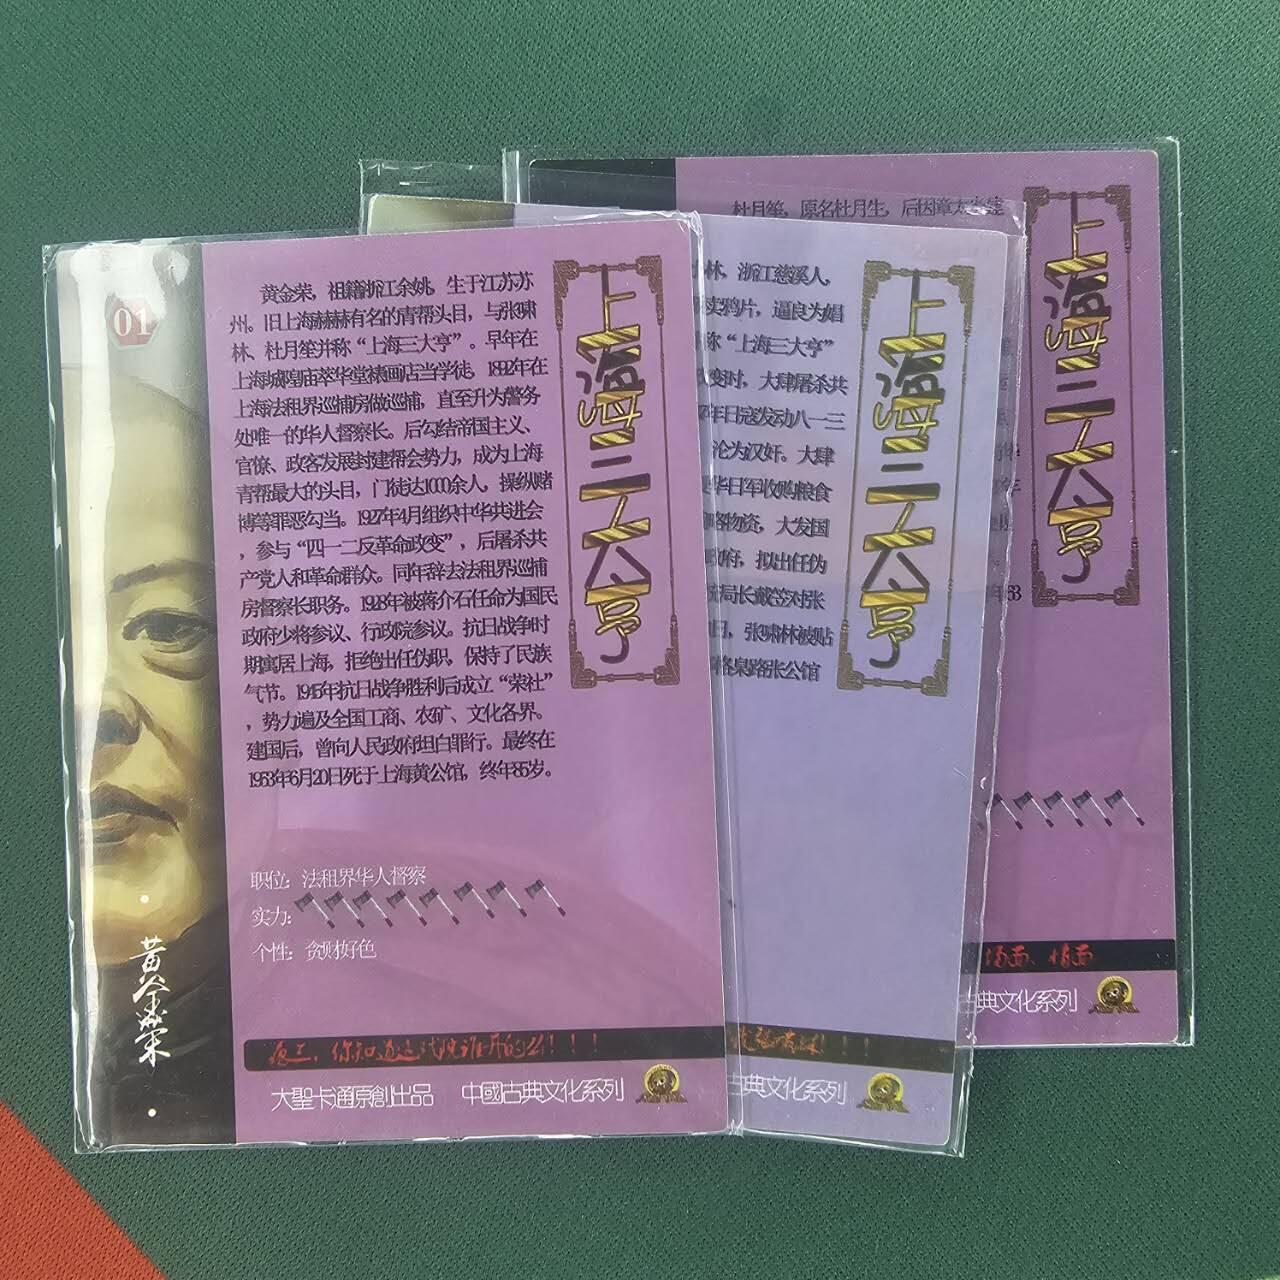 01
黄金荣，祖籍浙江余姚，生于江苏苏
州。旧上海赫赫有名的青帮头目，与张啸
林、杜月笙并称“上海三大亨”。早年在
上海城隍庙萃华堂裱画店当学徒，1892年在
上海法租界巡捕房做巡捕，直至升为警务
处唯一的华人督察长。后勾结帝国主义、
官僚、政客发展封建帮会势力，成为上海
青帮最大的头目，门徒达1000余人，操纵赌
博等罪恶勾当。1927年4月组织中华共进会
，参与“四一二反革命政变”，后屠杀共
产党人和革命群众。同年辞去法租界巡捕
房督察长职务。1928年被蒋介石任命为国民
政府少将参议、行政院参议。抗日战争时
期寓居上海，拒绝出任伪职，保持了民族
气节。1945年抗日战争胜利后成立“荣社”
，势力遍及全国工商、农矿、文化各界。
建国后，曾向人民政府坦白罪行。最终在
1953年6月20日死于上海黄公馆，终年85岁。
上海三大亨
职位：法租界华人督察
实力：
个性：贪财好色
黄金荣
大聖卡通原創出品 中國古典文化系列
林，浙江慈溪人，
卖鸦片，逼良为娼
称“上海三大亨”
变时，大肆屠杀共
年日寇发动八一三
沦为汉奸。大肆
华日军收购粮食
物资，大发国
政府，拟出任伪
局长戴笠对张
日，张啸林被贴
格臬路张公馆
上海三大亨
古典文化系列
杜月笙，原名杜月生，后因章太炎建
上海三大亨
场面、情面
古典文化系列